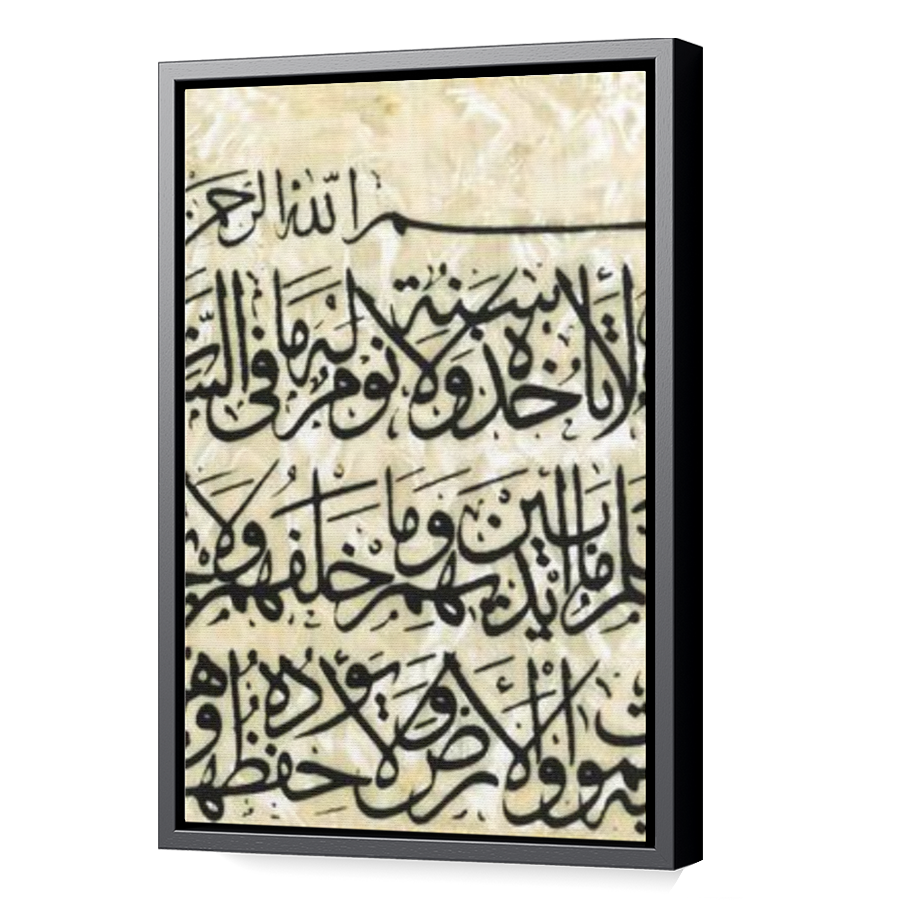 سم الله الرحمن
لا تأخذه سنة ولا نوم له ما في
علم ما بين أيديهم وما خلفهم ولا
والأرض ولا يؤده حفظهما وهو